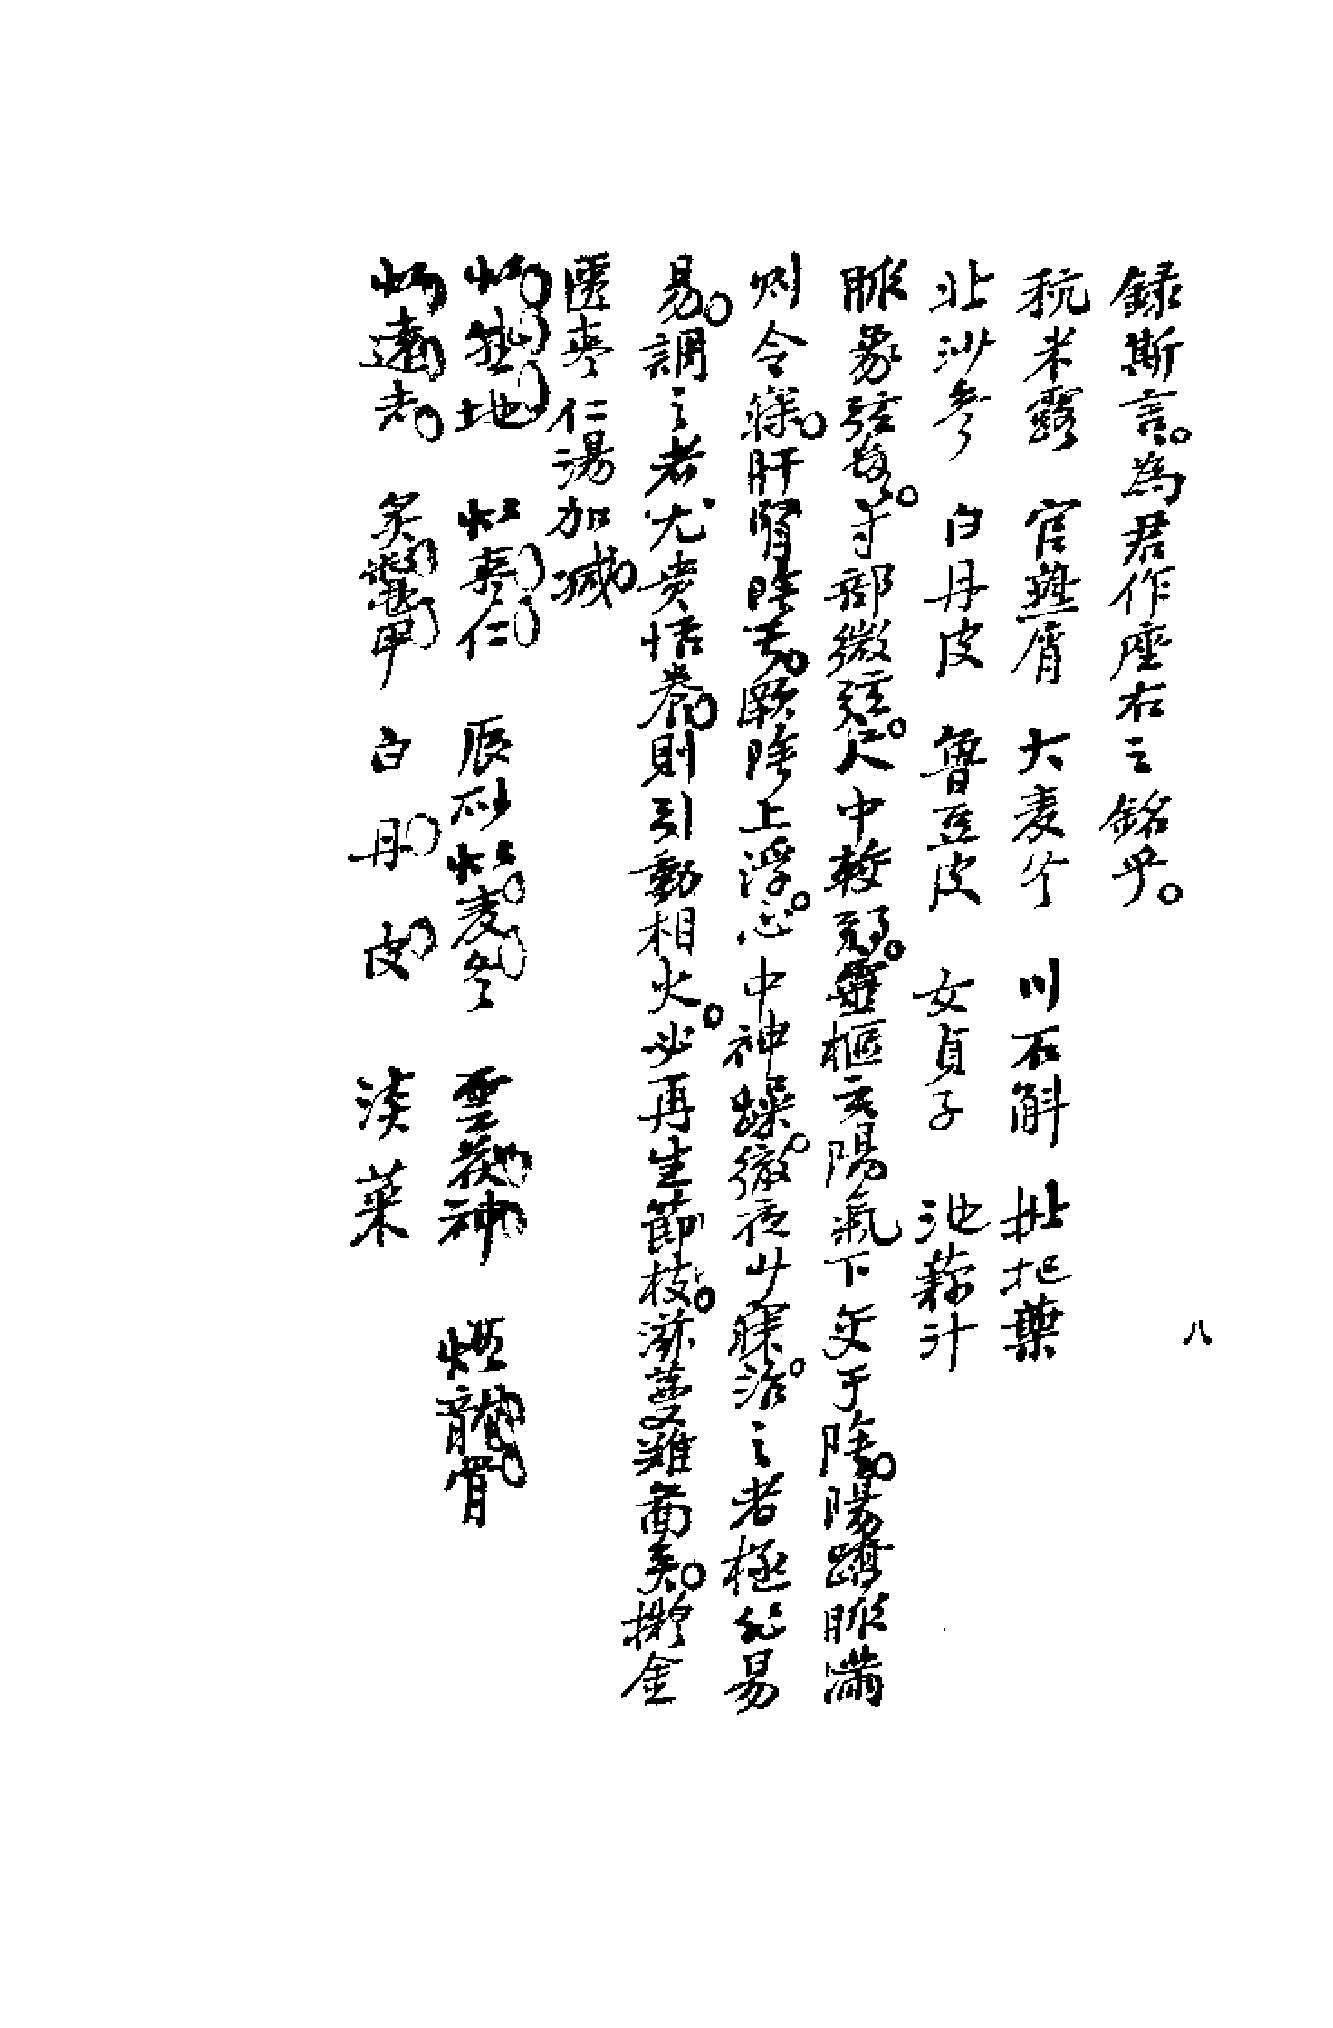 録斯言。為君作座右之銘乎。
秔米露 官燕屑 大麦仁 川石斛 枇杷葉
北沙參 白丹皮 魯豆皮 女貞子 池藕汁
脈象弦数。寸部微弦。尺中較弱。靈樞云陽氣下交于陰。陽蹻脈滿
则令寐。肝腎陰虧。厥陰上浮。心中神躁。徹夜少寐。治之者極非易
易。調之者尤贵恬養。則引動相火。必再生節枝。滋蔓難啚矣。擬金
匱枣仁湯加減
炒熟地 炒枣仁 辰砂炒麦冬 雲茯神 煅龍骨
炒遠志 炙鱉甲 白丹皮 淡菜
八